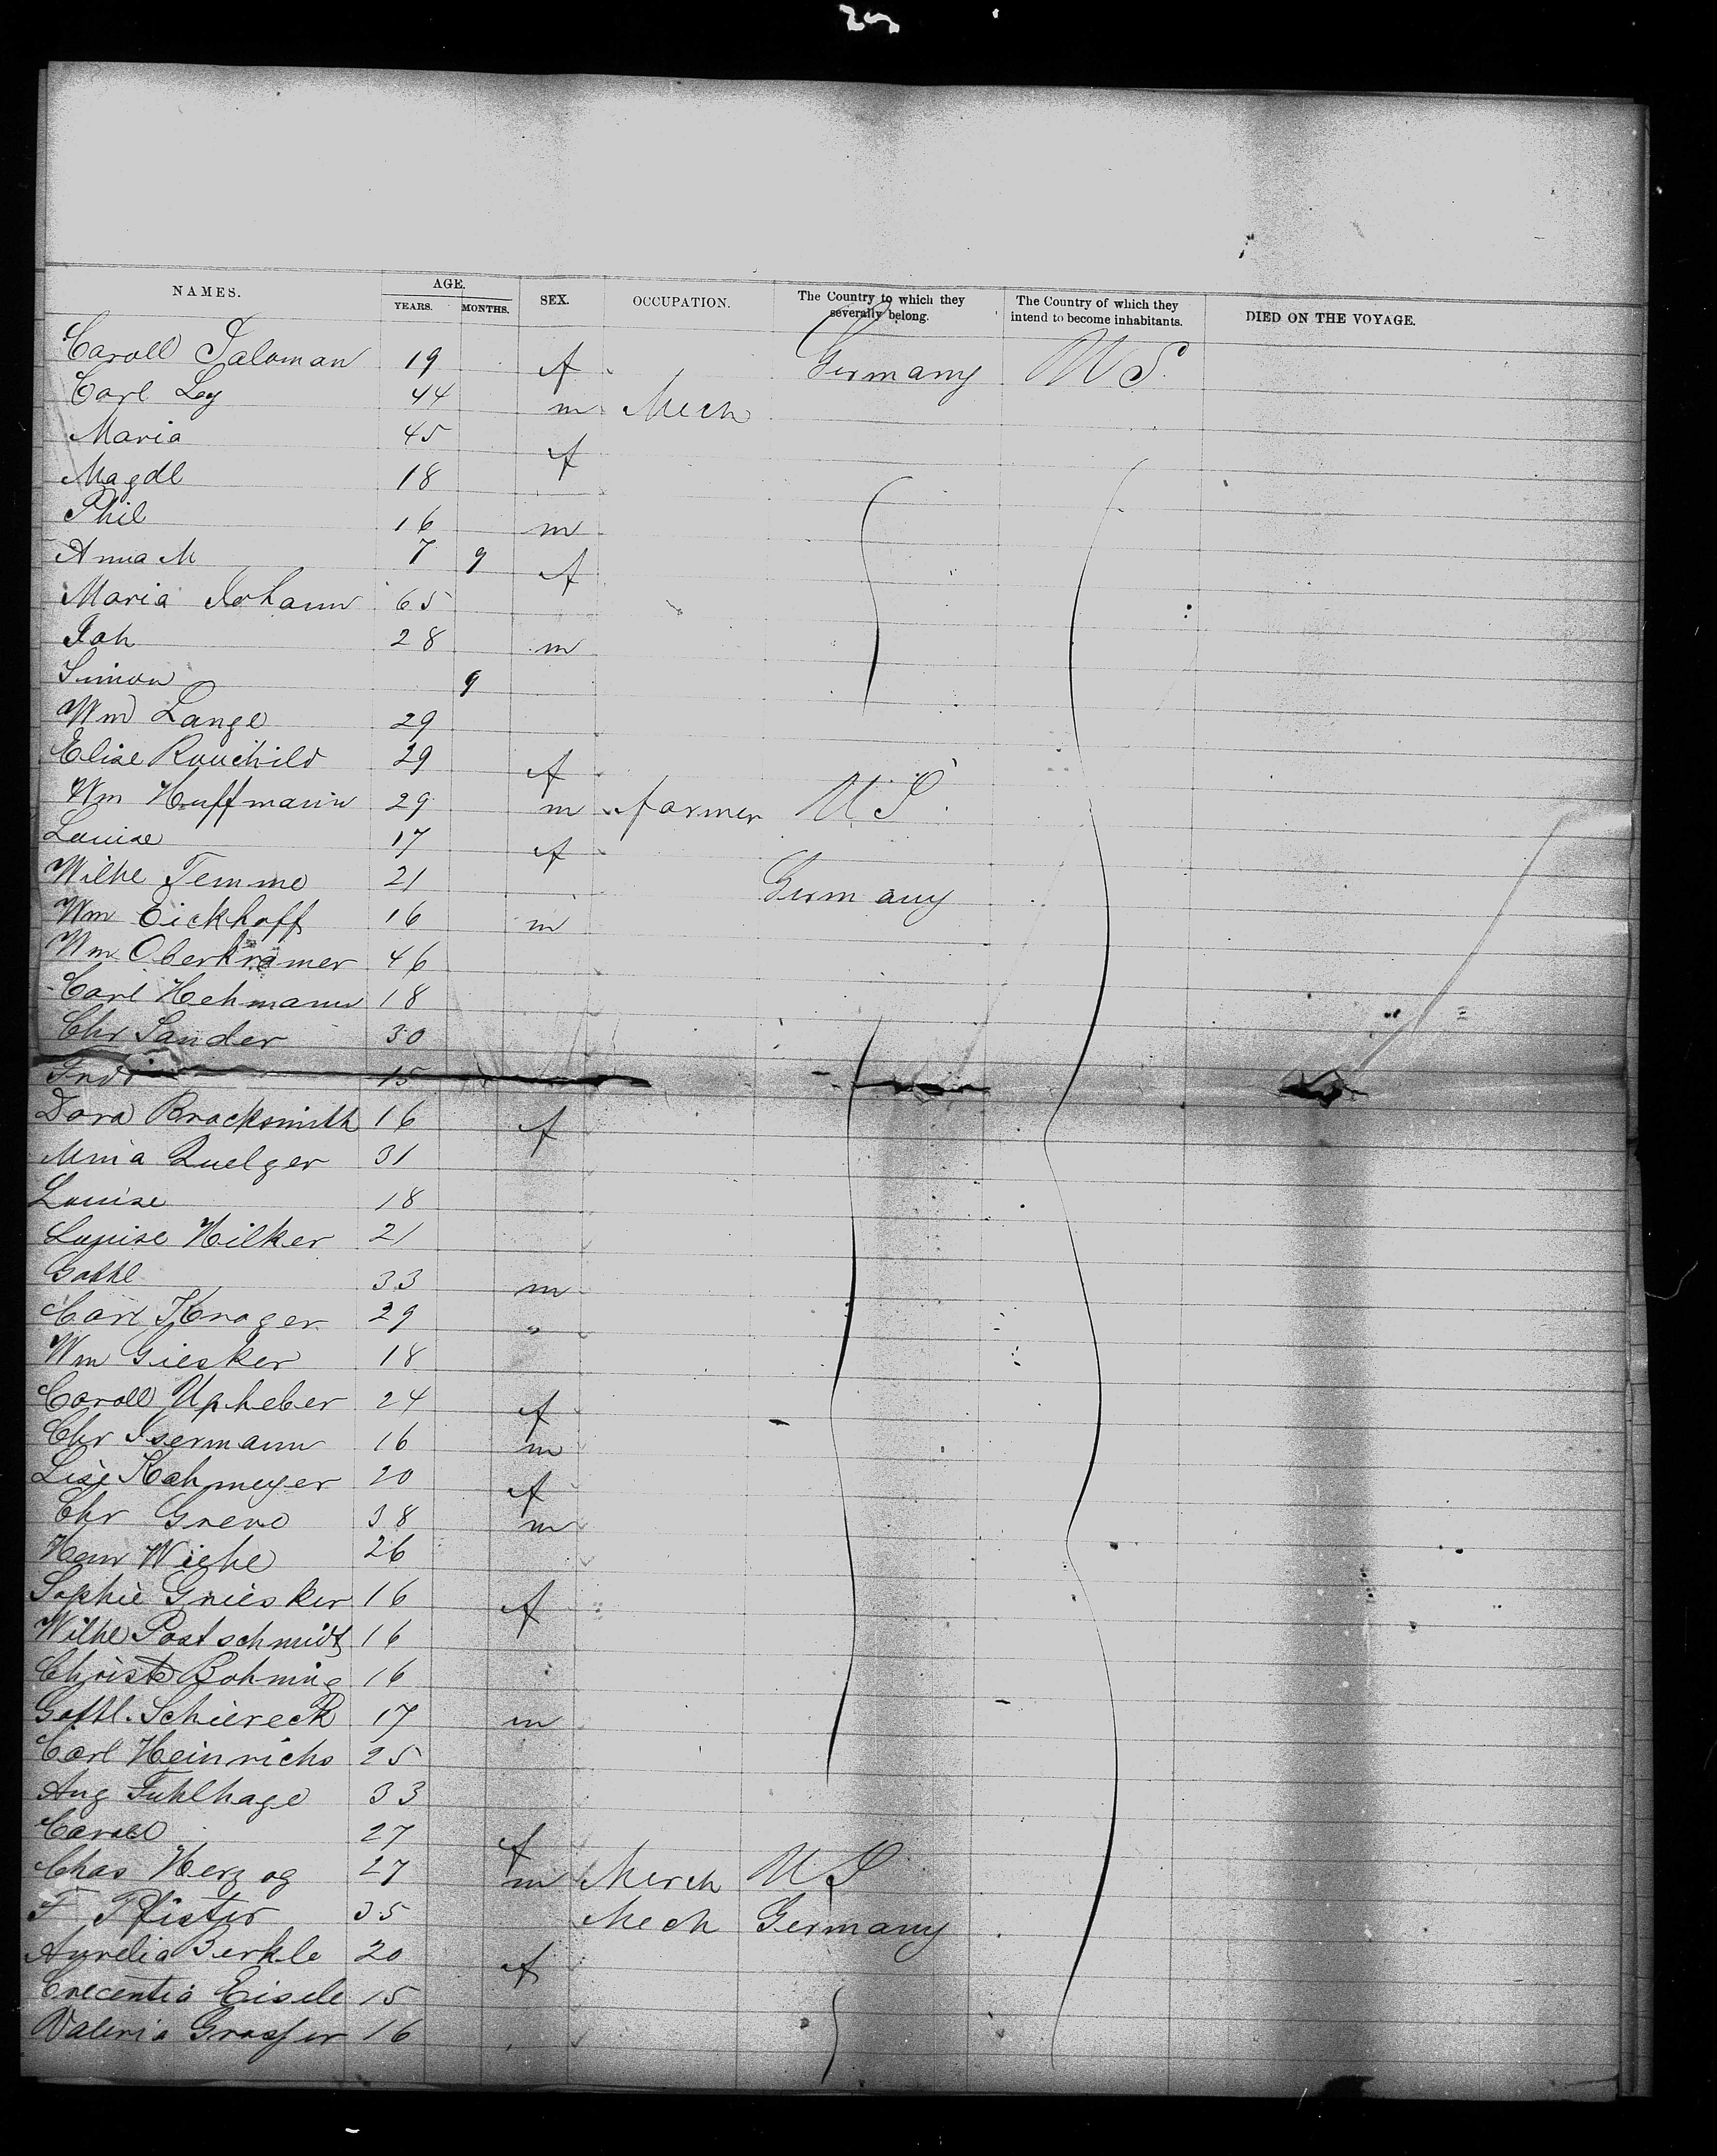 NAMES. AGE. SEX. OCCUPATION. The Country to which they severally belong. The Country of which they intend to become inhabitants. DIED ON THE VOYAGE.
YEARS. MONTHS.
Caroll Saloman 19 f Germany US
Carl Ley 44 m Mech
Maria 45 f
Magdl 18
Phil 16 m
Anna M 7 9 f
Maria Johann 65
Joh 28 m
Simon 9
Wm Lange 29
Elise 29 f
Wm Huffmann 29 m farmer US
Louise 17 f
Wilhe Temme 21 Germany
Wm Eickhoff 16 m
Wm Oberkramer 46
Carl Hehmann 18
Chr Sander 30
Frdr 15
Dora Bracksmith 16 f
Mina Quelger 31
Louise 18
Louise Hilker 21
Gottl 33 m
Carl Krager 29 "
Wm Giesker 18
Caroll Upheber 24 f
Chr Isermann 16 m
Lise Kahmeyer 20 f
Chr Greve 38 m
Henr Wiehe 26
Sophie Griesker 16 f
Wilhe Postschmidt 16
Christe Bohming 16
Gottl. Schiereck 17 m
Carl Heinrichs 25
Aug Fuhlhage 33
Caroll 27 f
Chas Herzog 27 m Merch US
F Pfister 35 Mech Germany
Aurelia Berkle 20 f
Crecentia Eisele 15
Valeria Grasser 16